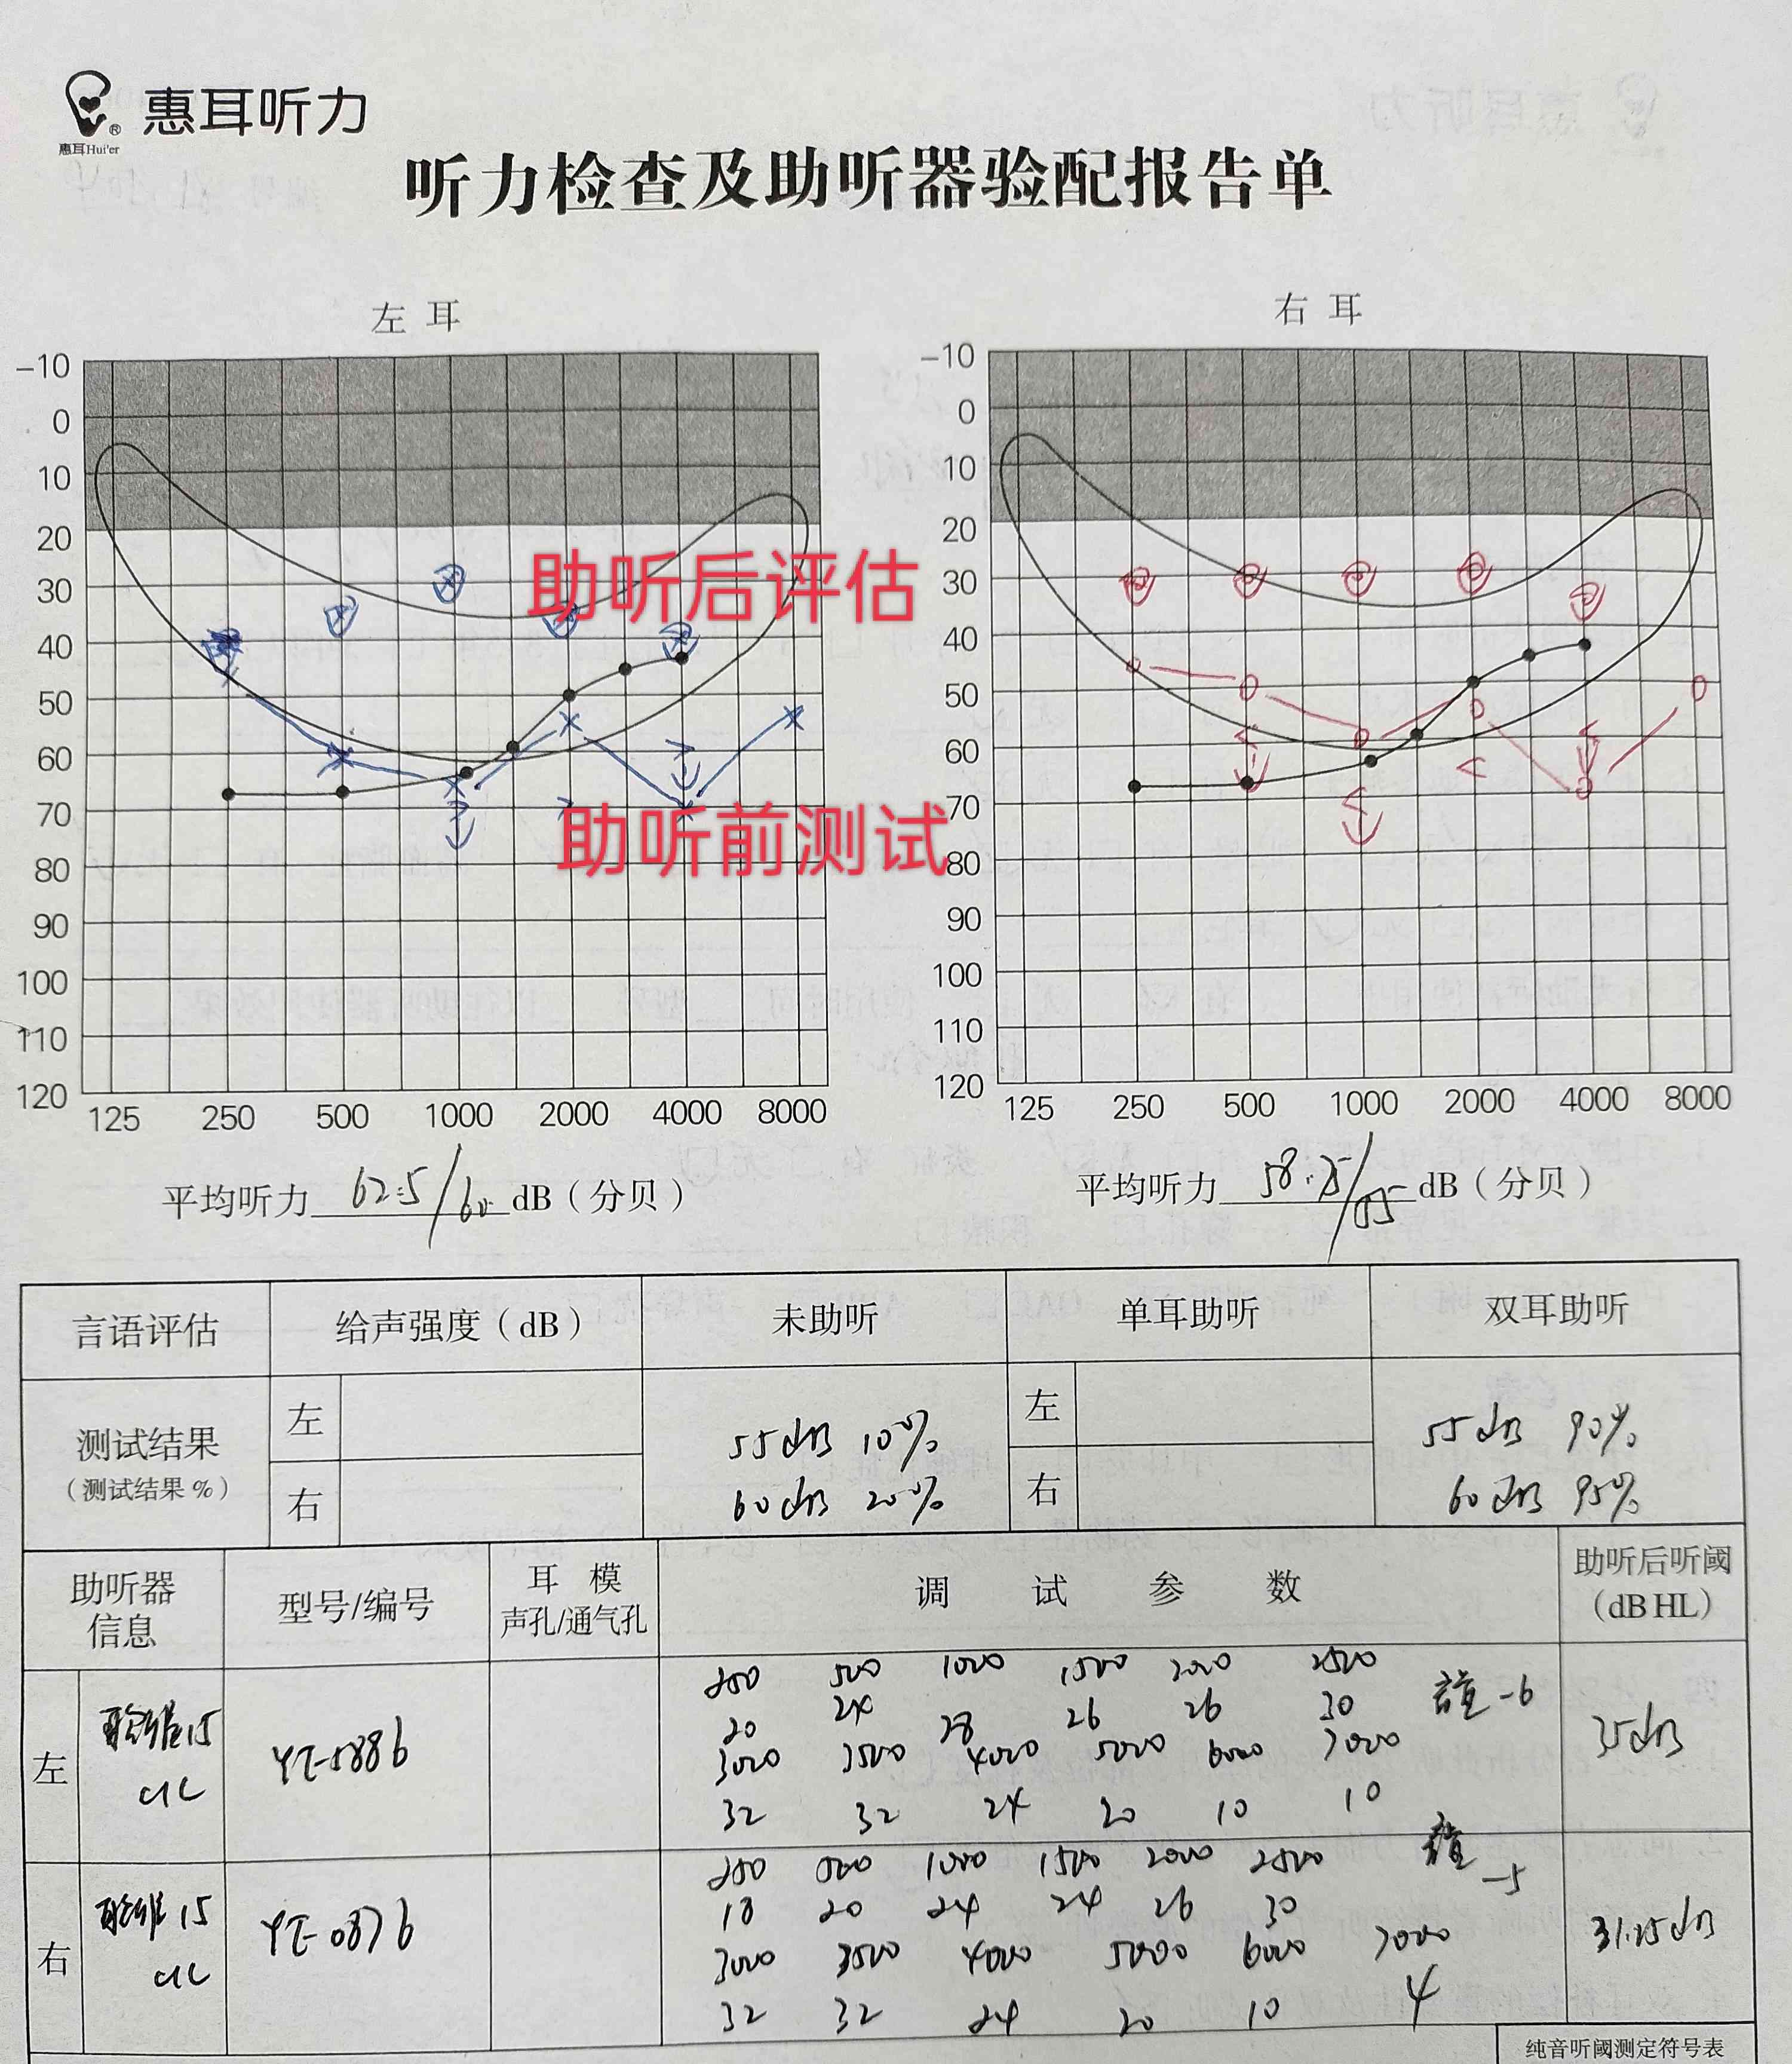 惠耳听力
惠耳Hui'er
听力检查及助听器验配报告单
左 耳
右 耳
-10
0
10
20
30
40
50
60
70
80
90
100
110
120
125 250 500 1000 2000 4000 8000
-10
0
10
20
30
40
50
60
70
80
90
100
110
120
125 250 500 1000 2000 4000 8000
助听后评估
助听前测试
平均听力 62.5/60 dB（分贝）
平均听力 58.75/55 dB（分贝）
言语评估 给声强度（dB） 未助听 单耳助听 双耳助听
测试结果
（测试结果%）
左
右
55dB 10%
60dB 20%
左
右
55dB 90%
60dB 95%
助听器
信息
型号/编号
耳 模
声孔/通气孔
调 试 参 数
助听后听阈
（dB HL）
左
15
CIC
250 500 1000 1500 2000 2500
20 24 28 26 26 30
-6
3000 3500 4000 5000 6000 7000
32 32 24 20 10 10
35dB
右
15
CIC
250 500 1000 1500 2000 2500
-5
18 20 24 24 26 30
3000 3500 4000 5000 6000 7000
32 32 24 20 10 4
31.25dB
纯音听阈测定符号表